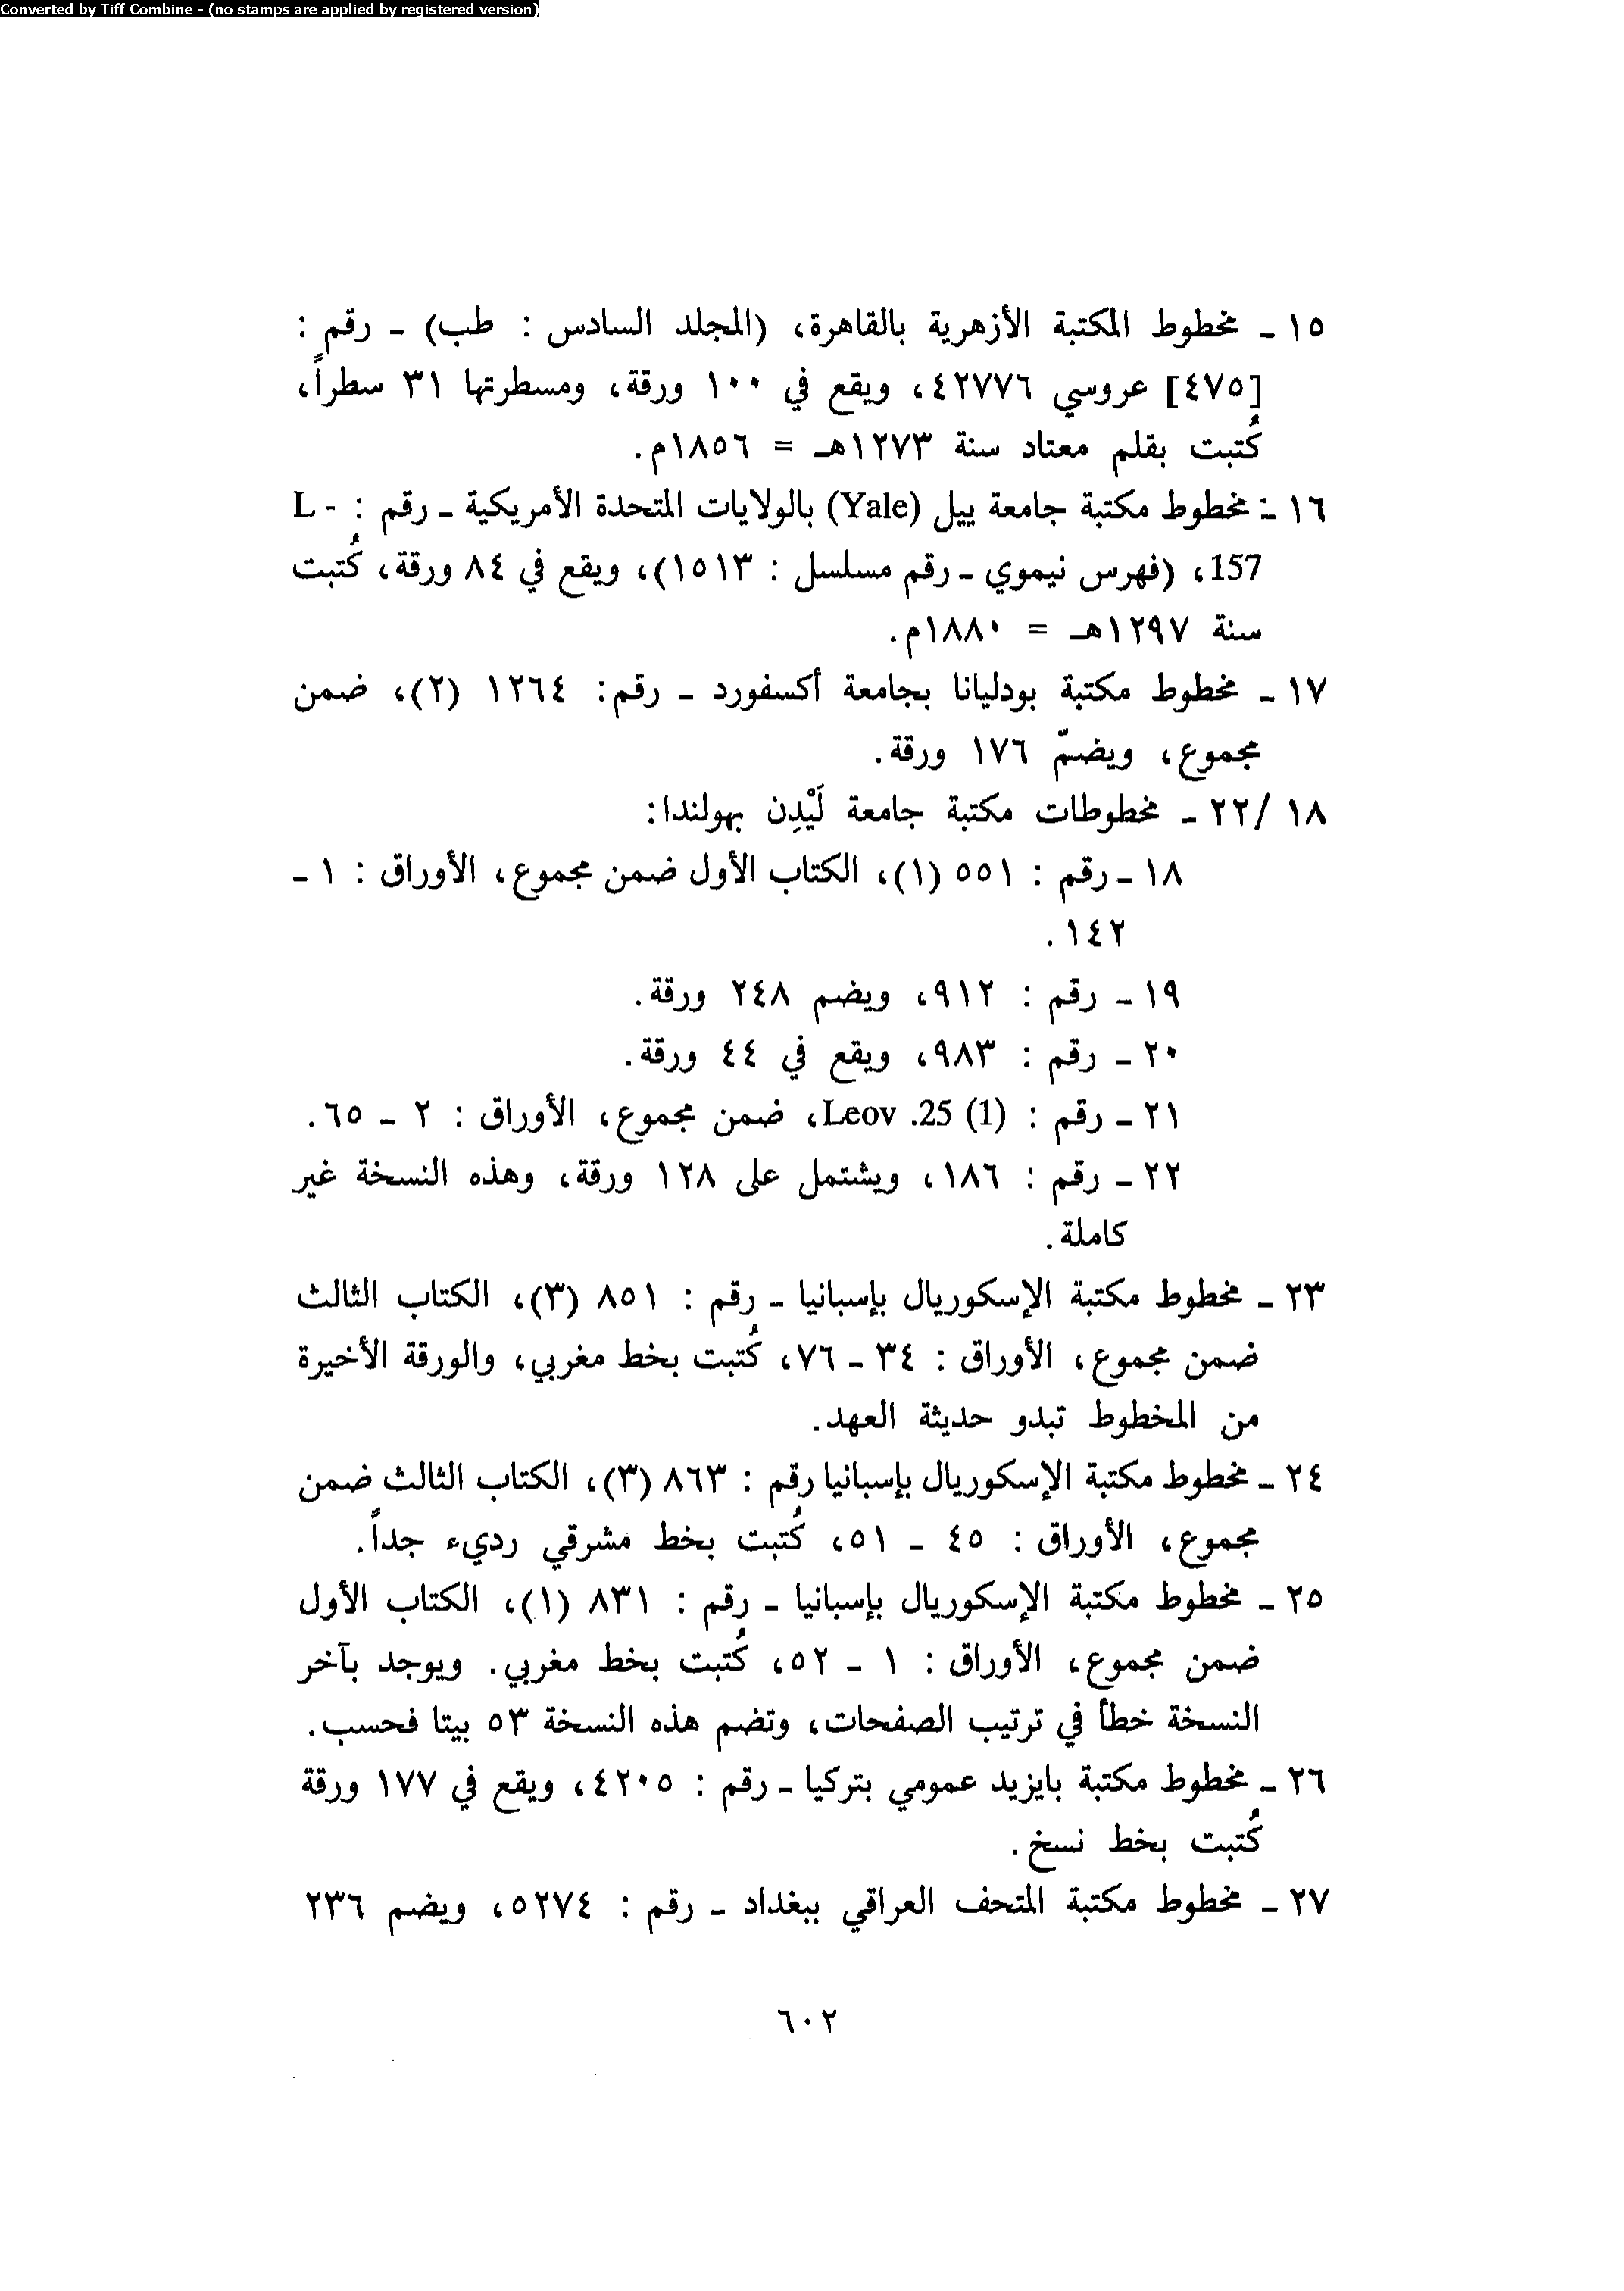 Converted by Tiff Combine - (no stamps are applied by registered version)
١٥ - مخطوط المكتبة الأزهرية بالقاهرة، (المجلد السادس : طب) - رقم :
[٤٧٥] عروسي ٤٢٧٧٦، ويقع في ١٠٠ ورقة، ومسطرتها ٣١ سطراً،
كُتبت بقلم معتاد سنة ١٢٧٣هـ = ١٨٥٦م.
١٦ - مخطوط مكتبة جامعة ييل (Yale) بالولايات المتحدة الأمريكية - رقم : L -
157، (فهرس نيموي - رقم مسلسل : ١٥١٣)، ويقع في ٨٤ ورقة، كُتبت
سنة ١٢٩٧هـ = ١٨٨٠م.
١٧ - مخطوط مكتبة بودليانا بجامعة أكسفورد - رقم: ١٢٦٤ (٢)، ضمن
مجموع، ويضمّ ١٧٦ ورقة.
١٨ /٢٢ - مخطوطات مكتبة جامعة لَيْدِن بهولندا:
١٨ - رقم : ٥٥١ (١)، الكتاب الأول ضمن مجموع، الأوراق : ١ -
١٤٢.
١٩ - رقم : ٩١٢، ويضم ٢٤٨ ورقة.
٢٠ - رقم : ٩٨٣، ويقع في ٤٤ ورقة.
٢١ - رقم : Leov .25 (1)، ضمن مجموع، الأوراق : ٢ - ٦٥.
٢٢ - رقم : ١٨٦، ويشتمل على ١٢٨ ورقة، وهذه النسخة غير
كاملة.
٢٣ - مخطوط مكتبة الإسكوريال بإسبانيا - رقم : ٨٥١ (٣)، الكتاب الثالث
ضمن مجموع، الأوراق : ٣٤ - ٧٦، كُتبت بخط مغربي، والورقة الأخيرة
من المخطوط تبدو حديثة العهد.
٢٤ - مخطوط مكتبة الإسكوريال بإسبانيا رقم : ٨٦٣ (٣)، الكتاب الثالث ضمن
مجموع، الأوراق : ٤٥ - ٥١، كُتبت بخط مشرقي رديء جداً.
٢٥ - مخطوط مكتبة الإسكوريال بإسبانيا - رقم : ٨٣١ (١)، الكتاب الأول
ضمن مجموع، الأوراق : ١ - ٥٢، كُتبت بخط مغربي. ويوجد بآخر
النسخة خطأ في ترتيب الصفحات، وتضم هذه النسخة ٥٣ بيتا فحسب.
٢٦ - مخطوط مكتبة بايزيد عمومي بتركيا - رقم : ٤٢٠٥، ويقع في ١٧٧ ورقة
كُتبت بخط نسخ.
٢٧ - مخطوط مكتبة المتحف العراقي ببغداد - رقم : ٥٢٧٤، ويضم ٢٣٦
٦٠٢